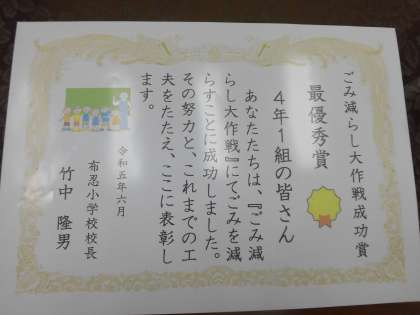 ごみ減らし大作戦成功賞
最優秀賞
4年1組の皆さん
あなたたちは、『ごみ減
らし大作戦』にてごみを減
らすことに成功しました。
その努力と、これまでの工
夫をたたえ、ここに表彰し
ます。
令和五年六月
布忍小学校校長
竹中 隆男